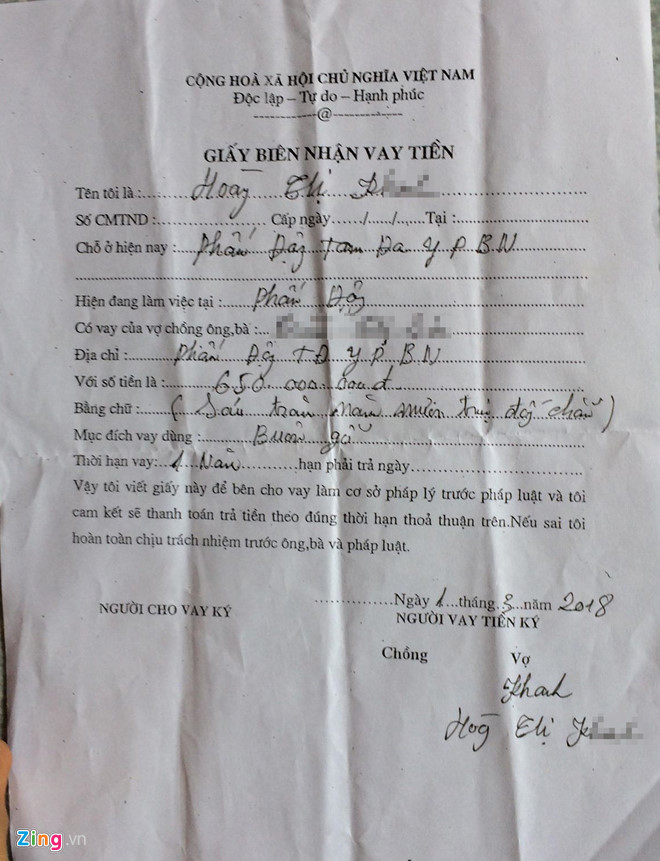 CỘNG HOÀ XÃ HỘI CHỦ NGHĨA VIỆT NAM
Độc lập – Tự do – Hạnh phúc
------------@-------------
GIẤY BIÊN NHẬN VAY TIỀN
Tên tôi là :..... Hoàg Thị
Số CMTND :..................... Cấp ngày....../....../...... Tại :........................
Chỗ ở hiện nay : Phấn Độg Tam Đa Y P. B N
Hiện đang làm việc tại : Phấn Độg
Có vay của vợ chồng ông,bà :
Địa chỉ : Phấn Độg TĐ Y P. B N
Với số tiền là : 650 000 000đ
Bằng chữ : ( Sáu trăm năm mươi triệu đồg chẵn )
Mục đích vay dùng : Buôn gỗ
Thời hạn vay: 1 Năm ............hạn phải trả ngày..............................
Vậy tôi viết giấy này để bên cho vay làm cơ sở pháp lý trước pháp luật và tôi
cam kết sẽ thanh toán trả tiền theo đúng thời hạn thoả thuận trên.Nếu sai tôi
hoàn toàn chịu trách nhiệm trước ông,bà và pháp luật.
..................Ngày 1...tháng.3...năm 2018
NGƯỜI CHO VAY KÝ NGƯỜI VAY TIỀN KÝ
Chồng Vợ
Khanh
Hoàg Thị
Zing.vn